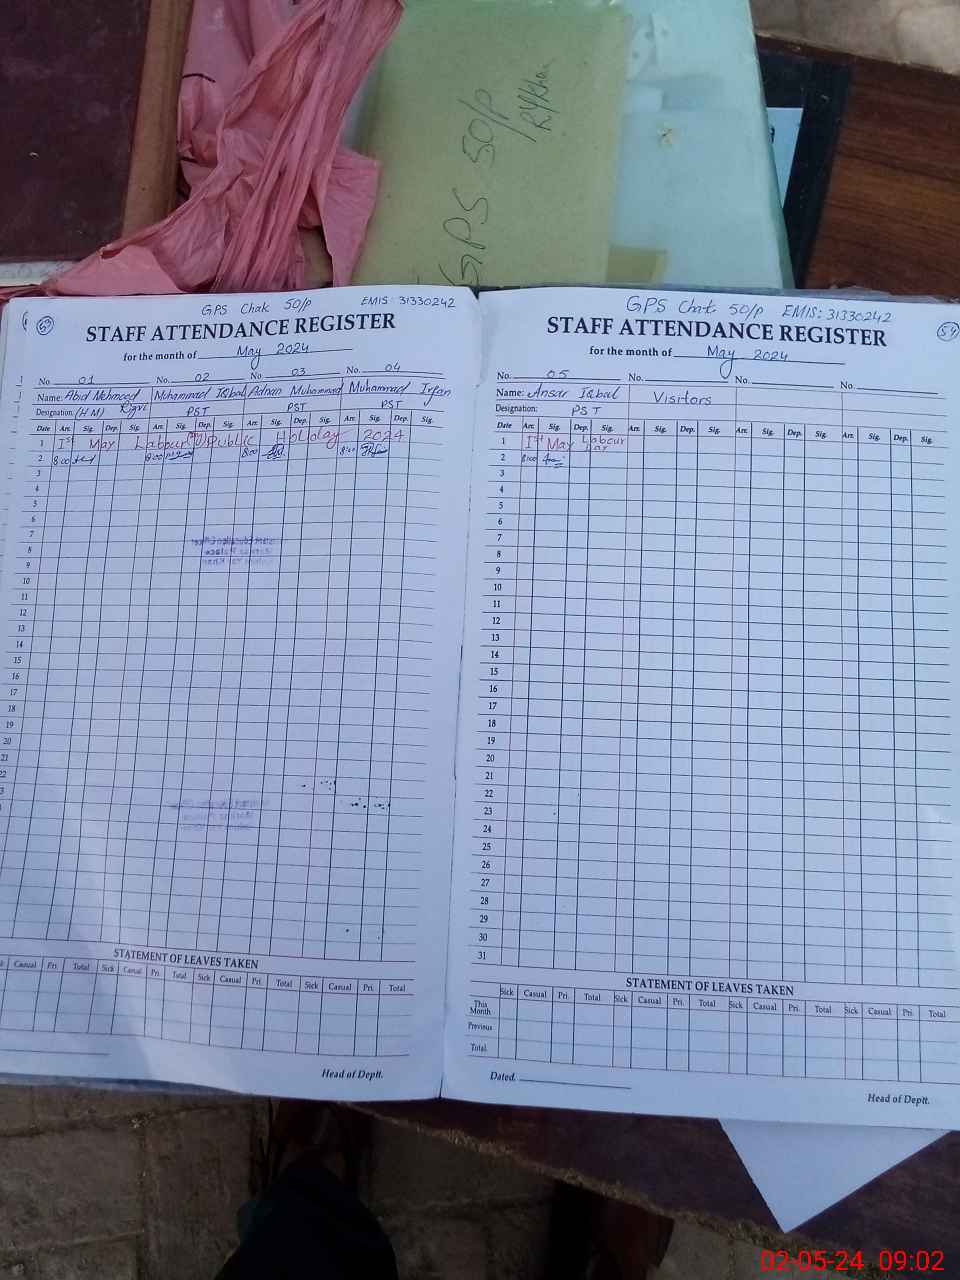 GPS 50/p
RYKhan
GPS Chak 50/p EMIS: 31330242
STAFF ATTENDANCE REGISTER
for the month of May 2024
No. 01 No. 02 No. 03 No. 04
Name: Abid Mehmood Rizvi Muhammad Iqbal Adnan Muhammad Muhammad Irfan
Designation: (HM) PST PST PST
Date Arr. Sig. Dep. Sig. Arr. Sig. Dep. Sig. Arr. Sig. Dep. Sig. Arr. Sig. Dep. Sig.
1 Ist May Labour Public Holiday 2024
2 8:00 8:00 8:00 8:00
3
4
5
6
7
8
9
10
11
12
13
14
15
16
17
18
19
20
21
STATEMENT OF LEAVES TAKEN
Casual Pri. Total Sick Casual Pri. Total Sick Casual Pri. Total Sick Casual Pri. Total
Head of Deptt.
GPS Chak 50/p EMIS: 31330242
54
STAFF ATTENDANCE REGISTER
for the month of May 2024
No. 05 No. No. No.
Name: Ansar Iqbal Visitors
Designation: PST
Date Arr. Sig. Dep. Sig. Arr. Sig. Dep. Sig. Arr. Sig. Dep. Sig. Arr. Sig. Dep. Sig.
1 Ist May Labour Day
2 8:00
3
4
5
6
7
8
9
10
11
12
13
14
15
16
17
18
19
20
21
22
23
24
25
26
27
28
29
30
31
STATEMENT OF LEAVES TAKEN
Sick Casual Pri. Total Sick Casual Pri. Total Sick Casual Pri. Total Sick Casual Pri. Total
This Month
Previous
Total
Dated.
Head of Deptt.
02-05-24 09:02